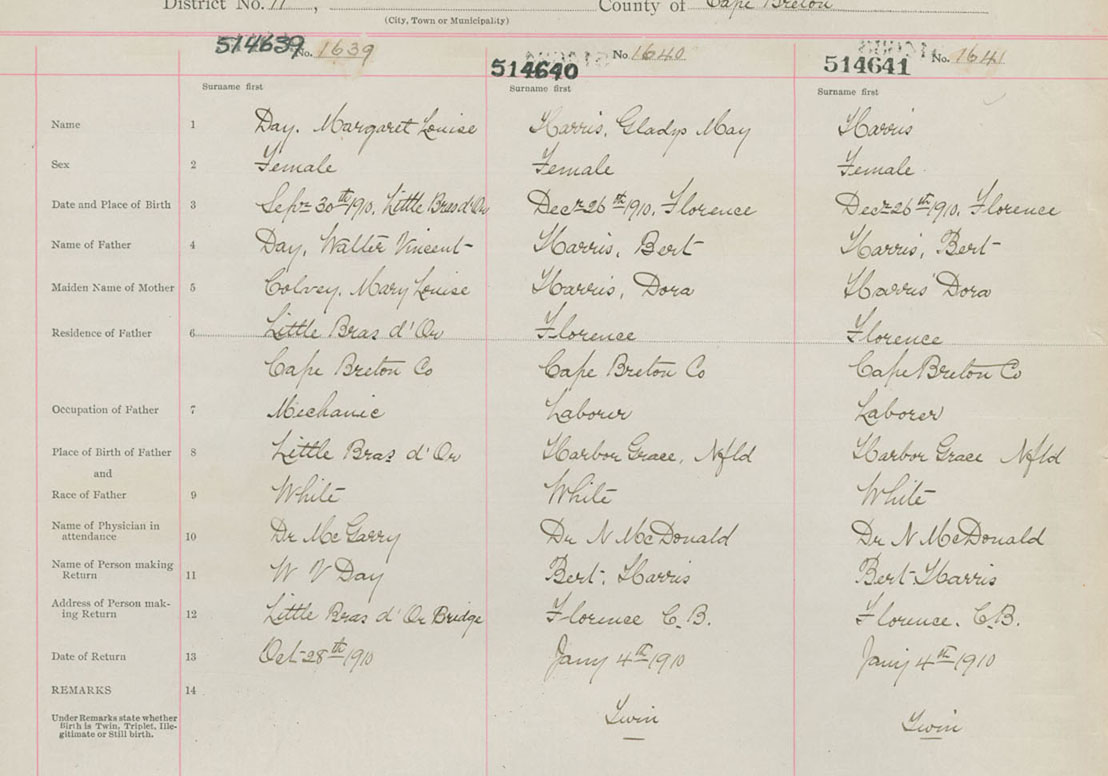 District No. 11, County of Cape Breton
(City, Town or Municipality)
514639 No. 1639 514640 No 1640 514641 No. 1641
Surname first Surname first Surname first
Name 1 Day, Margaret Louise Harris, Gladys May Harris
Sex 2 Female Female Female
Date and Place of Birth 3 Sepr 30th 1910, Little Bras d'Or Decr 26th 1910, Florence Decr 26th 1910, Florence
Name of Father 4 Day, Walter Vincent Harris, Bert Harris, Bert
Maiden Name of Mother 5 Colvey, Mary Louise Harris, Dora Harris Dora
Residence of Father 6 Little Bras d'Or Florence Florence
Cape Breton Co Cape Breton Co Cape Breton Co
Occupation of Father 7 Mechanic Laborer Laborer
Place of Birth of Father 8 Little Bras d'Or Harbor Grace, Nfld Harbor Grace Nfld
and
Race of Father 9 White White White
Name of Physician in
attendance 10 Dr McGarry Dr N McDonald Dr N McDonald
Name of Person making
Return 11 W V Day Bert Harris Bert Harris
Address of Person mak-
ing Return 12 Little Bras d'Or Bridge Florence C.B. Florence, C.B.
Date of Return 13 Oct 28th 1910 Jany 4th 1910 Jany 4th 1910
REMARKS 14
Under Remarks state whether
Birth is Twin, Triplet, Ille-
gitimate or Still birth.
Twin Twin